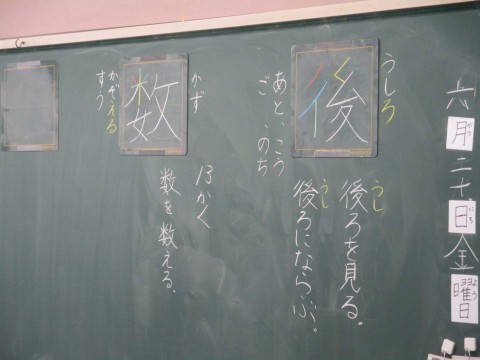 六月二十日金曜日
がつ
にち
よう
うしろ
後
あと、こう
ご、のち
後ろを見る。
うし
後ろにならぶ。
うし
かず
数
かぞえる
すう
13かく
数を数える。